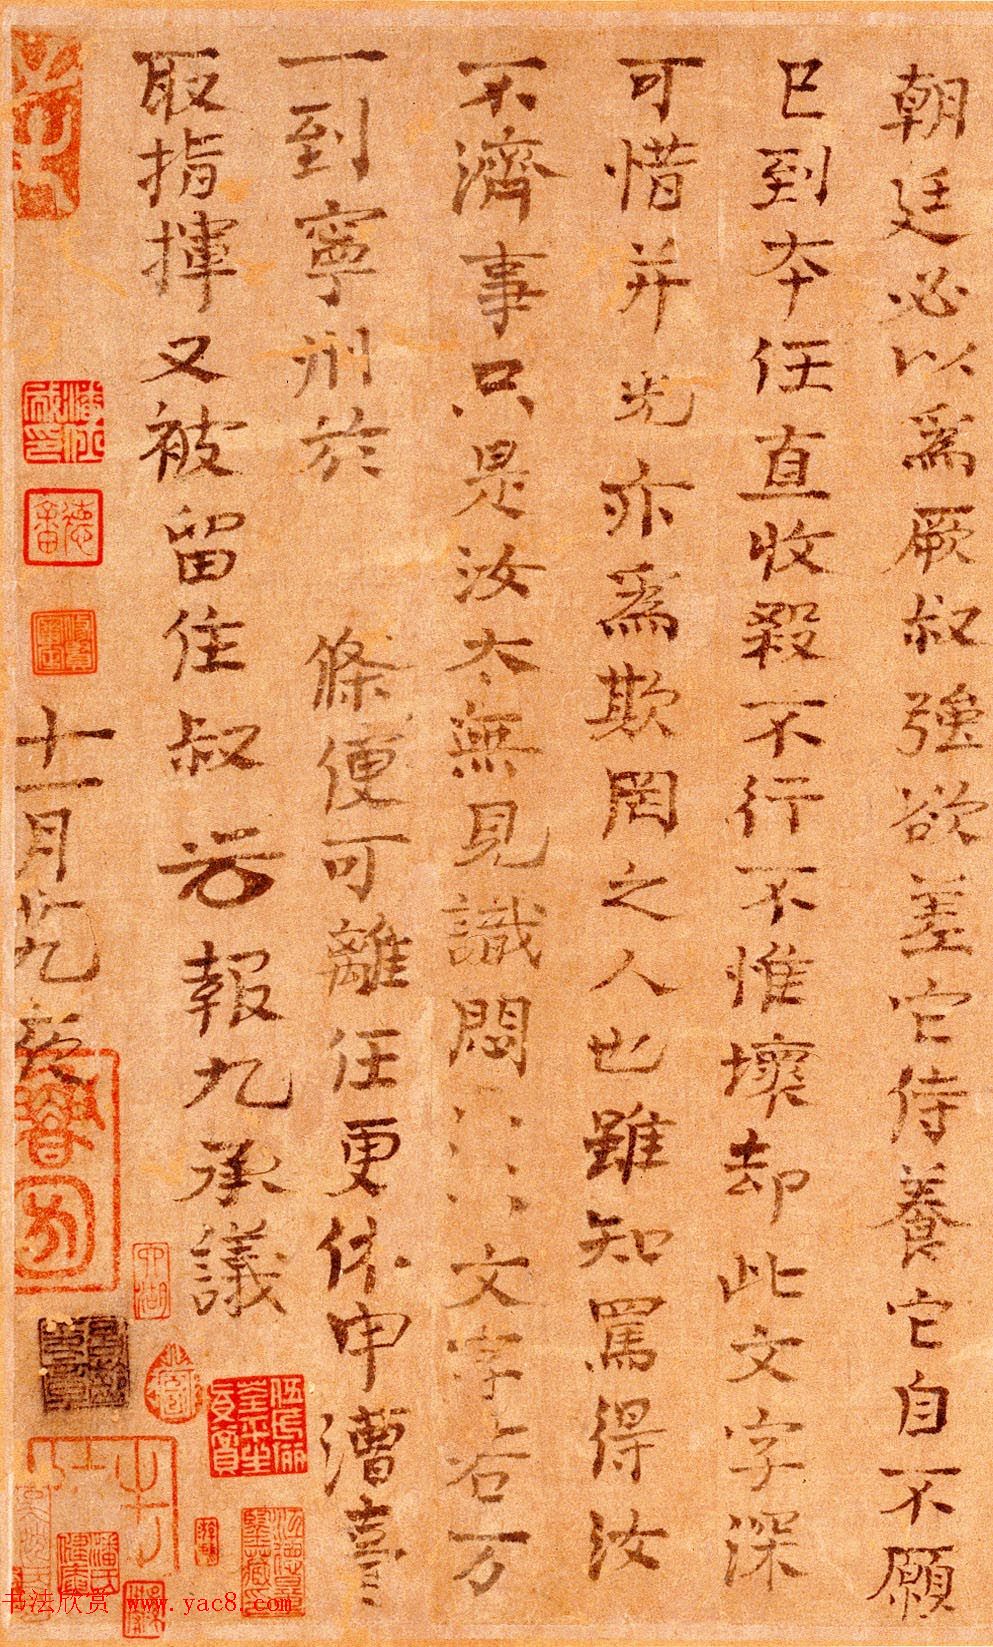 朝廷必以爲厥叔強欲差它侍養它自不願
已到本任直收殺不行不惟壞却此文字深
可惜并光亦爲欺罔之人也雖知罵得汝
不濟事只是汝太無見識悶悶悶文字若万
一到寧州於 條便可離任更休申漕臺
取指揮又被留住叔 光報九承議
十一月九夜
德畬
书法欣赏 www.yac8.com